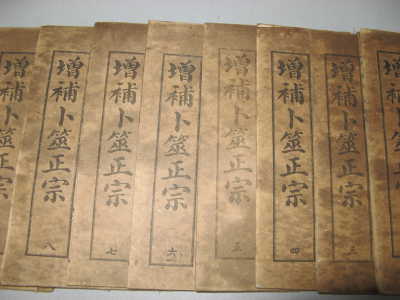 增補卜筮正宗
增補卜筮正宗 八
增補卜筮正宗 七
增補卜筮正宗 六
增補卜筮正宗 五
增補卜筮正宗 四
增補卜筮正宗 三
增補卜筮正宗